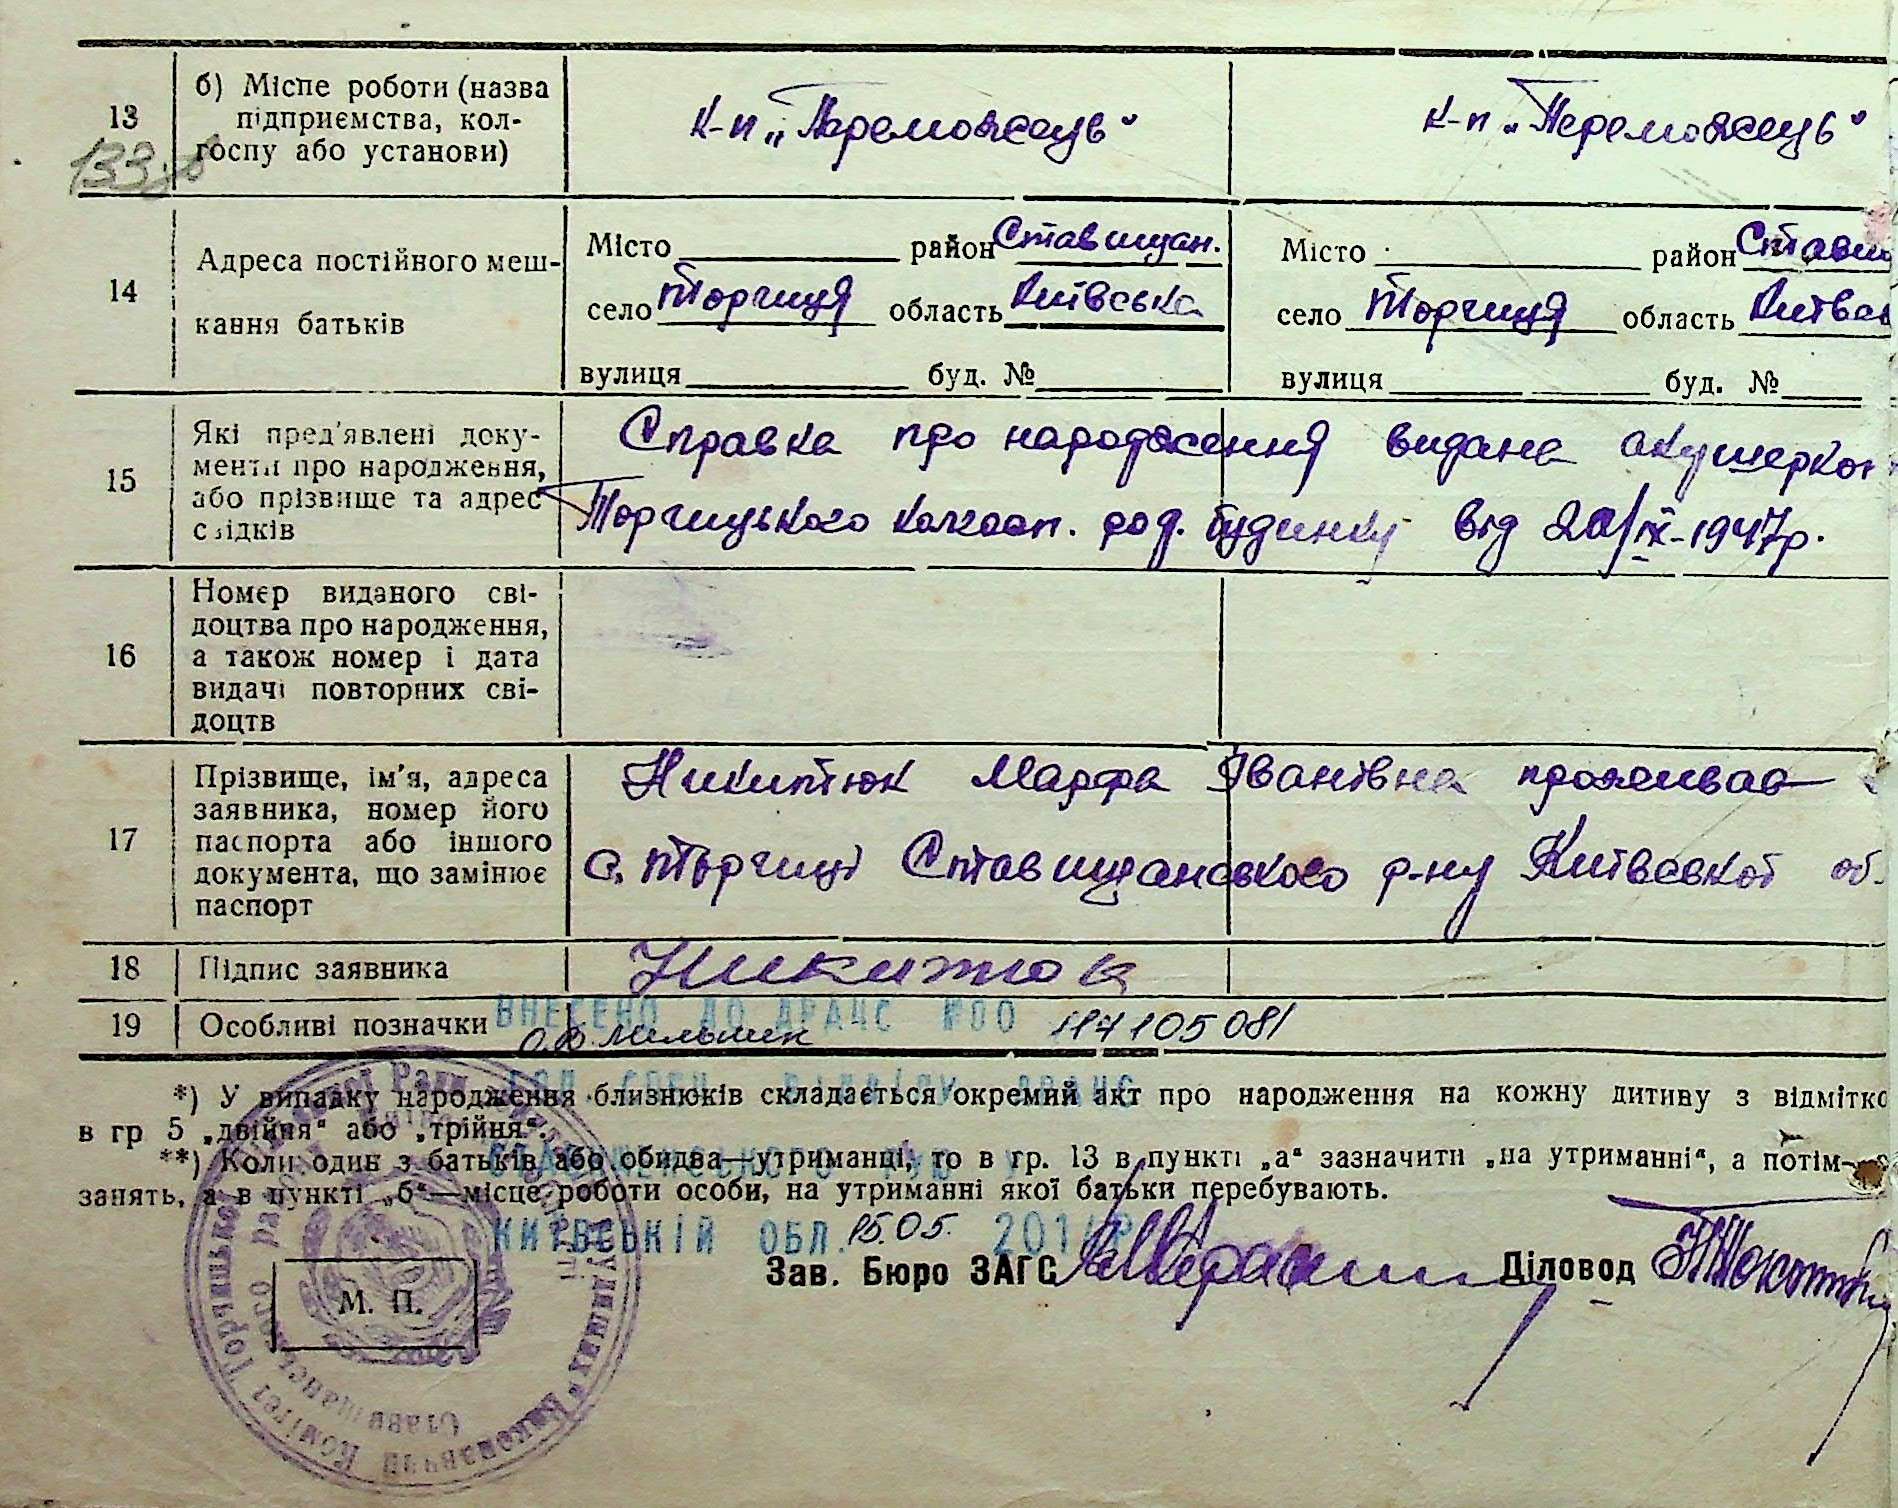 13
б) Місце роботи (назва
підприємства, кол-
госпу або установи)
к-п „Переможець“
к-п „Переможець“
14
Адреса постійного меш-
кання батьків
Місто район Ставищан.
село Торчиця область Київська
вулиця буд. №
Місто район Стави
село Торчиця область Київс
вулиця буд. №
15
Які пред'явлені доку-
менти про народження,
або прізвище та адрес
свідків
Справка про народження видана акушеркою
Торчицького колгосп. род. будинку від 20/IX-1947р.
16
Номер виданого сві-
доцтва про народження,
а також номер і дата
видачі повторних сві-
доцтв
17
Прізвище, ім'я, адреса
заявника, номер його
паспорта або іншого
документа, що замінює
паспорт
Никитюк Марфа Іванівна проживає
с. Торчиці Ставищанського р-ну Київської об.
18
Підпис заявника
Никитюк
19
Особливі позначки
ВНЕСЕНО ДО ДРАЦС №00 117105081
О.В. Мельник
*) У випадку народження близнюків складається окремий акт про народження на кожну дитину з відмітко
в гр 5 „двійня“ або „трійня“.
**) Коли один з батьків або обидва—утриманці, то в гр. 13 в пункті „а“ зазначити „на утриманні“, а потім—
занять, а в пункті „б“—місце роботи особи, на утриманні якої батьки перебувають.
КИЇВСЬКІЙ ОБЛ. 15.05.
Зав. Бюро ЗАГС
Діловод
М. П.